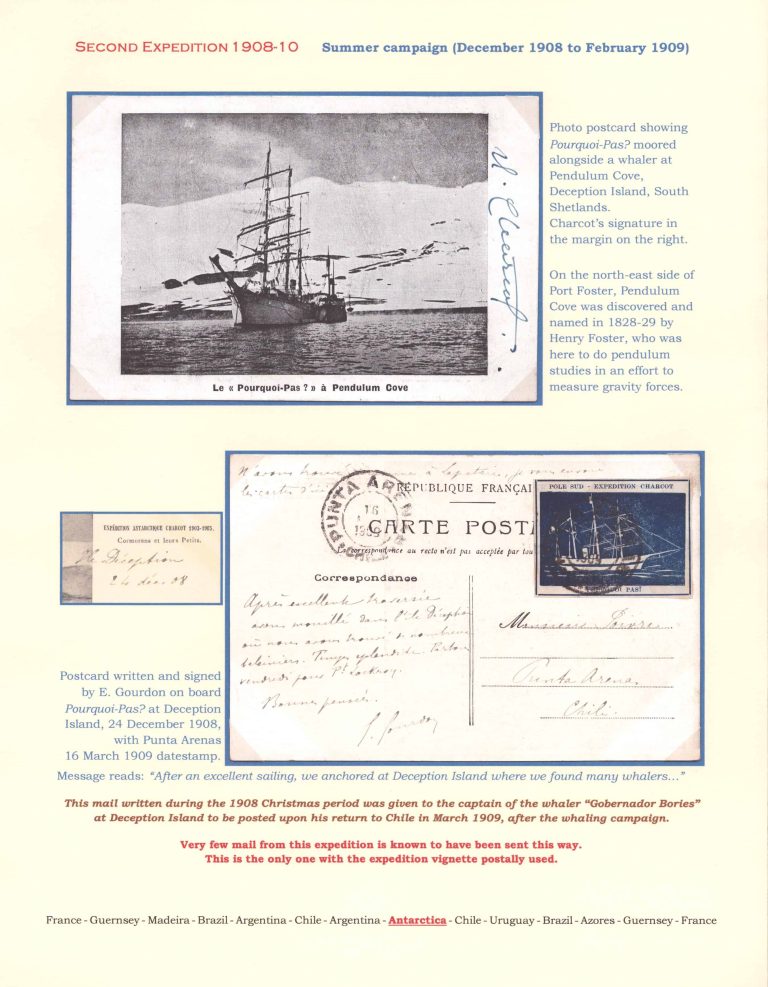 SECOND EXPEDITION 1908-10 Summer campaign (December 1908 to February 1909)
Photo postcard showing
Pourquoi-Pas? moored
alongside a whaler at
Pendulum Cove,
Deception Island, South
Shetlands.
Charcot's signature in
the margin on the right.
On the north-east side of
Port Foster, Pendulum
Cove was discovered and
named in 1828-29 by
Henry Foster, who was
here to do pendulum
studies in an effort to
measure gravity forces.
Charcot
Le « Pourquoi-Pas ? » à Pendulum Cove
EXPÉDITION ANTARCTIQUE CHARCOT 1903-1905.
Cormorans et leurs Petits.
Ile Déception
24 déc 08
N'avons trouvé
RÉPUBLIQUE FRANÇAI
PUNTA AREN
16
1909
CARTE POST
La correspondance au recto n'est pas acceptée par tou
POLE SUD - EXPEDITION CHARCOT
POURQUOI PAS?
Correspondance
Après excellente traversée
avons mouillé dans l'île Déception
où nous avons trouvé de nombreux
baleiniers. Temps splendide. Partons
vendredi pour Pt Lockroy.
Bonnes pensées.
E. Gourdon
Monsieur Poivre
Punta Arena
Chili
Postcard written and signed
by E. Gourdon on board
Pourquoi-Pas? at Deception
Island, 24 December 1908,
with Punta Arenas
16 March 1909 datestamp.
Message reads: “After an excellent sailing, we anchored at Deception Island where we found many whalers…”
This mail written during the 1908 Christmas period was given to the captain of the whaler “Gobernador Bories”
at Deception Island to be posted upon his return to Chile in March 1909, after the whaling campaign.
Very few mail from this expedition is known to have been sent this way.
This is the only one with the expedition vignette postally used.
France - Guernsey - Madeira - Brazil - Argentina - Chile - Argentina - Antarctica - Chile - Uruguay - Brazil - Azores - Guernsey - France